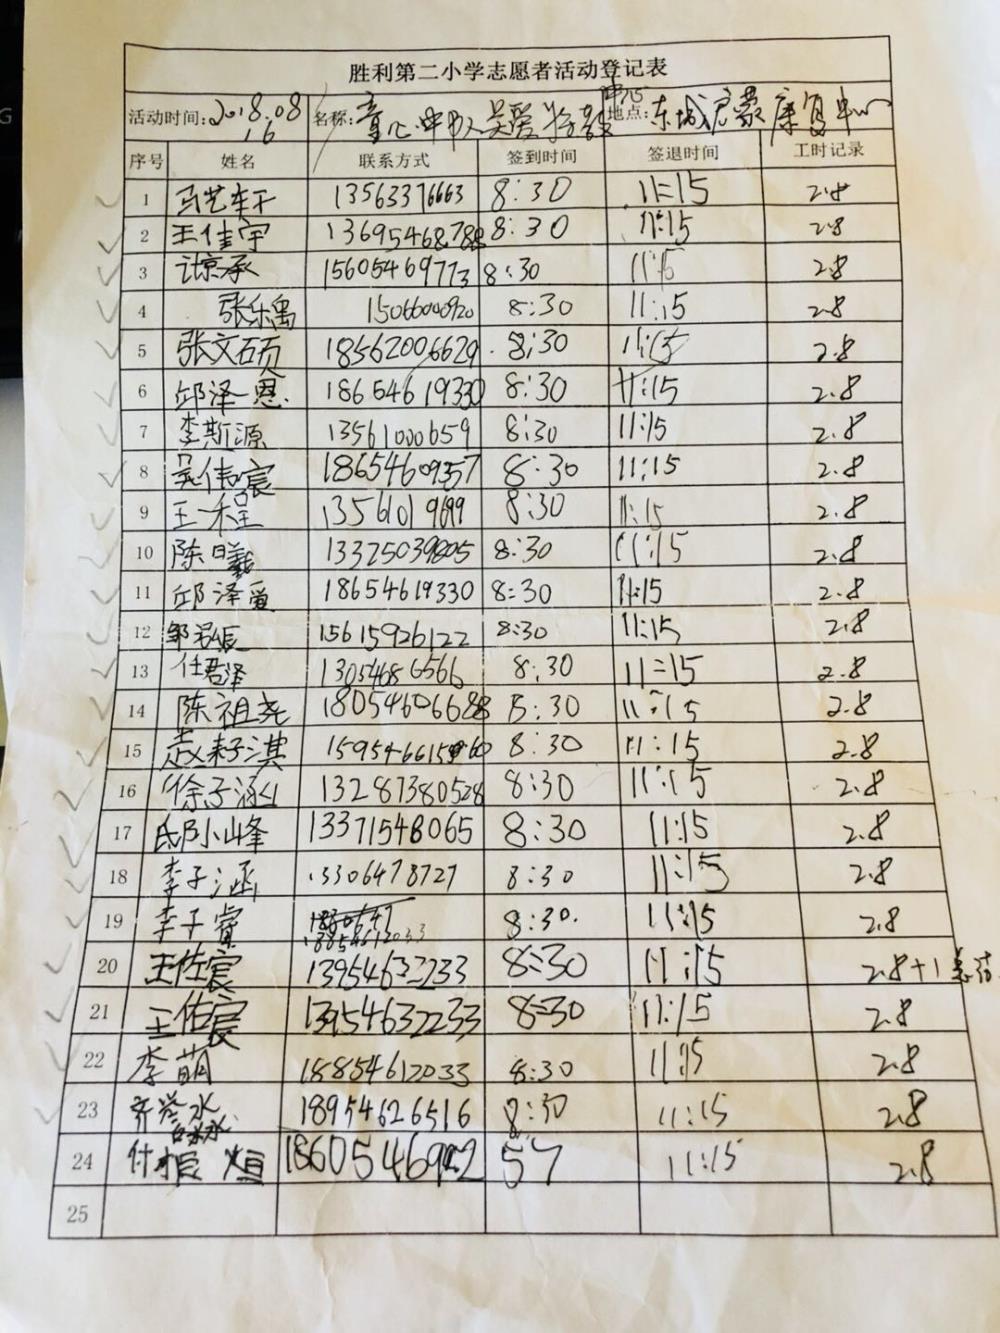 胜利第二小学志愿者活动登记表
活动时间:2018.08.16 名称:童心中队 爱 地点:东城启蒙康复中心
序号 姓名 联系方式 签到时间 签退时间 工时记录
1 马艺轩 13563376663 8:30 11:15 2.8
2 王佳宇 13695468788 8:30 11:15 2.8
3 许京承 15605469773 8:30 11:15 2.8
4 张乐禹 15066000920 8:30 11:15 2.8
5 张文硕 18562006629 8:30 11:15 2.8
6 邱泽恩 18654619330 8:30 11:15 2.8
7 李斯源 13561000659 8:30 11:15 2.8
8 吴伟宸 18654609357 8:30 11:15 2.8
9 王一程 8:30 11:15 2.8
10 陈曦 13325039805 8:30 11:15 2.8
11 邱泽爱 18654619330 8:30 11:15 2.8
12 邹 辰 15615926122 8:30 11:15 2.8
13 任君泽 13054686566 8:30 11:15 2.8
14 陈祖尧 18054606688 8:30 11:15 2.8
15 淇 8:30 11:15 2.8
16 徐子涵 13287380528 8:30 11:15 2.8
17 邸小峰 13371548065 8:30 11:15 2.8
18 李子涵 13306478727 8:30 11:15 2.8
19 李子睿 18854612033 8:30 11:15 2.8
20 王佐宸 13954632233 8:30 11:15 2.8+1
21 王佑宸 13954632233 8:30 11:15 2.8
22 李萌 18854612033 8:30 11:15 2.8
23 齐 18954626516 8:30 11:15 2.8
24 付 57 11:15 2.8
25